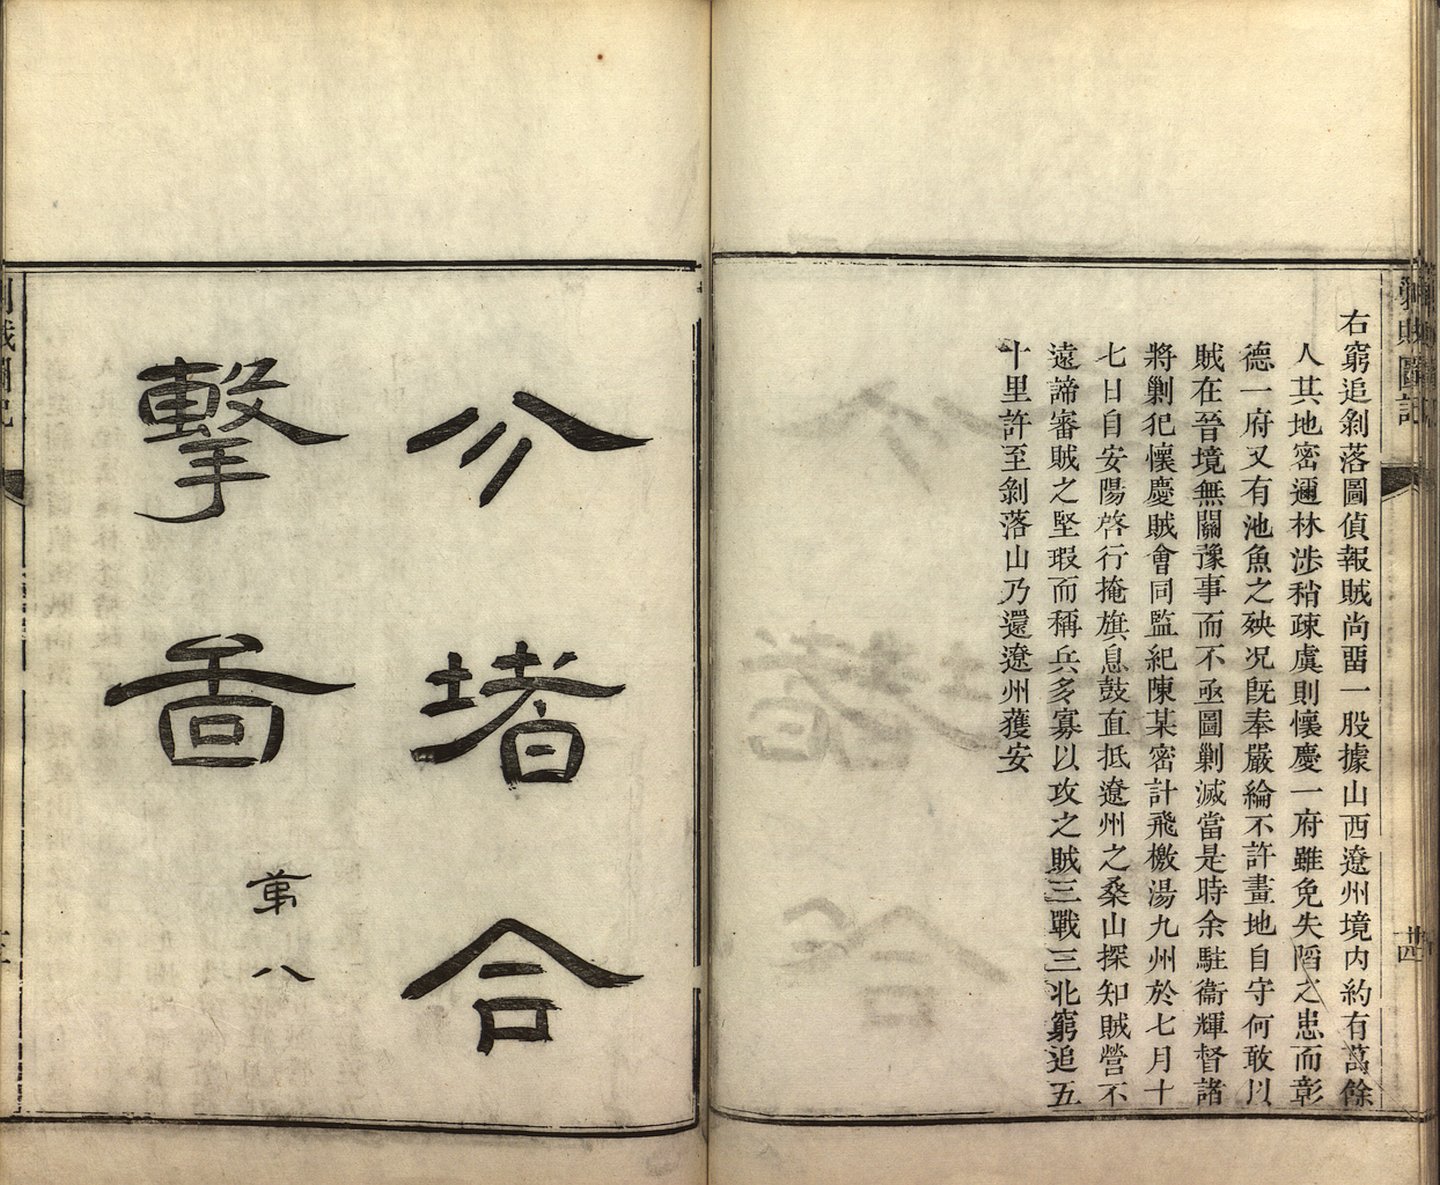 剿賊圖記
右窮追剝落圖偵報賊尚畱一股據山西遼州境內約有萬餘
人其地密邇林涉稍疎虞則懷慶一府雖免失陷之患而彰
德一府又有池魚之殃况旣奉嚴綸不許畫地自守何敢以
賊在晉境無關豫事而不亟圖剿滅當是時余駐衞輝督諸
將剿犯懷慶賊會同監紀陳某密計飛檄湯九州於七月十
七日自安陽啓行掩旗息鼓直抵遼州之桑山探知賊營不
遠諦審賊之堅瑕而稱兵多寡以攻之賊三戰三北窮追五
十里許至剝落山乃還遼州獲安
分堵合
擊圖
第八